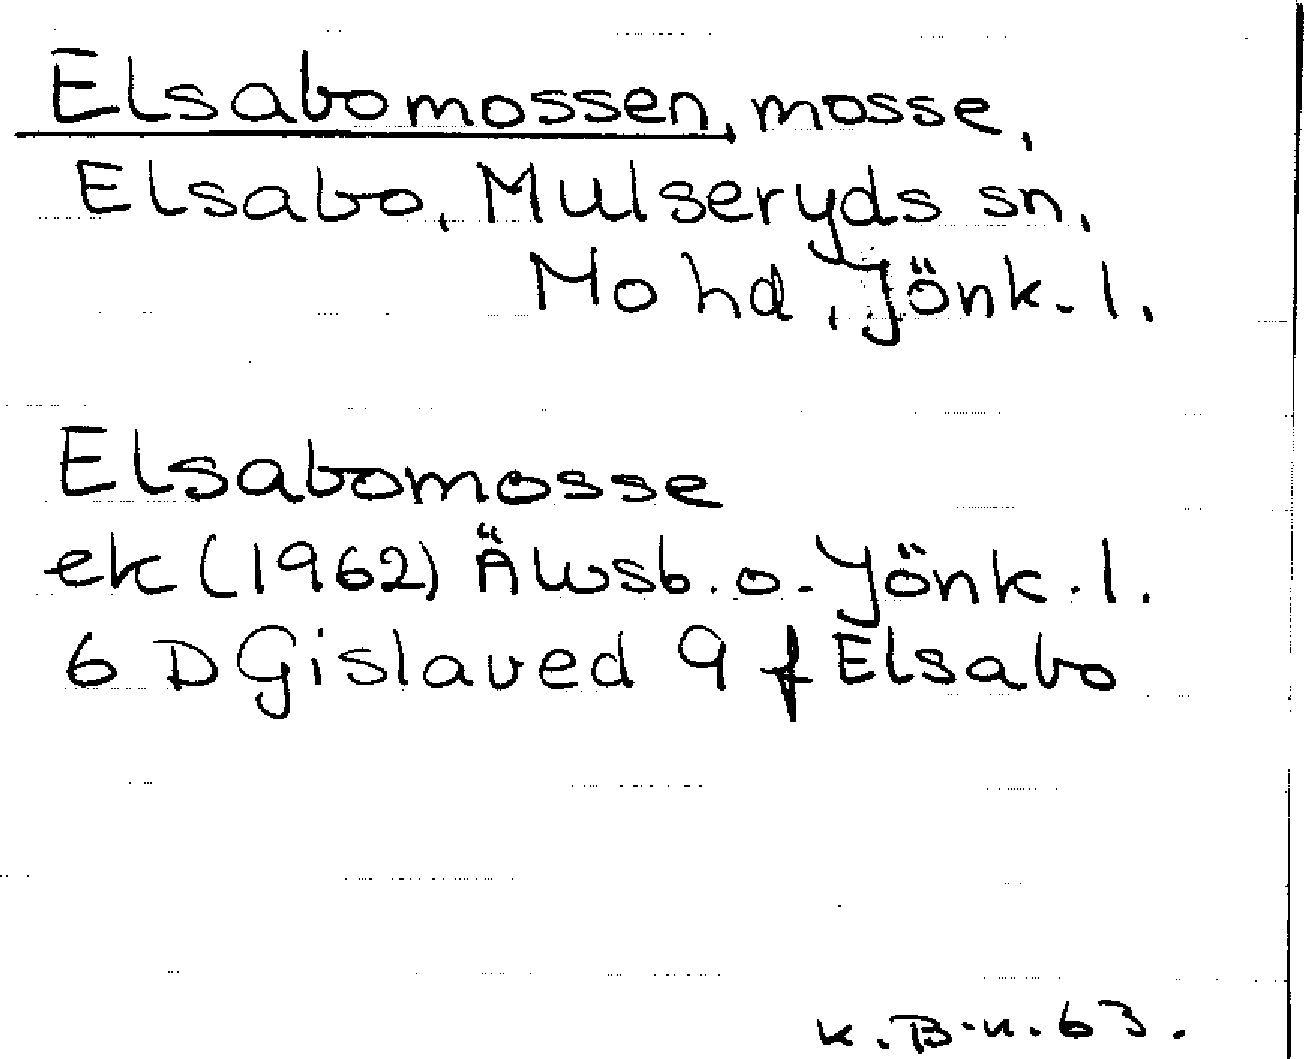 Elsabomossen, mosse,
Elsabo, Mulseryds sn,
Mo hd, Jönk. l.
Elsabomosse
ek (1962) Älvsb. o. Jönk. l.
6 D Gislaved 9 f Elsabo
K. B-n. 63.